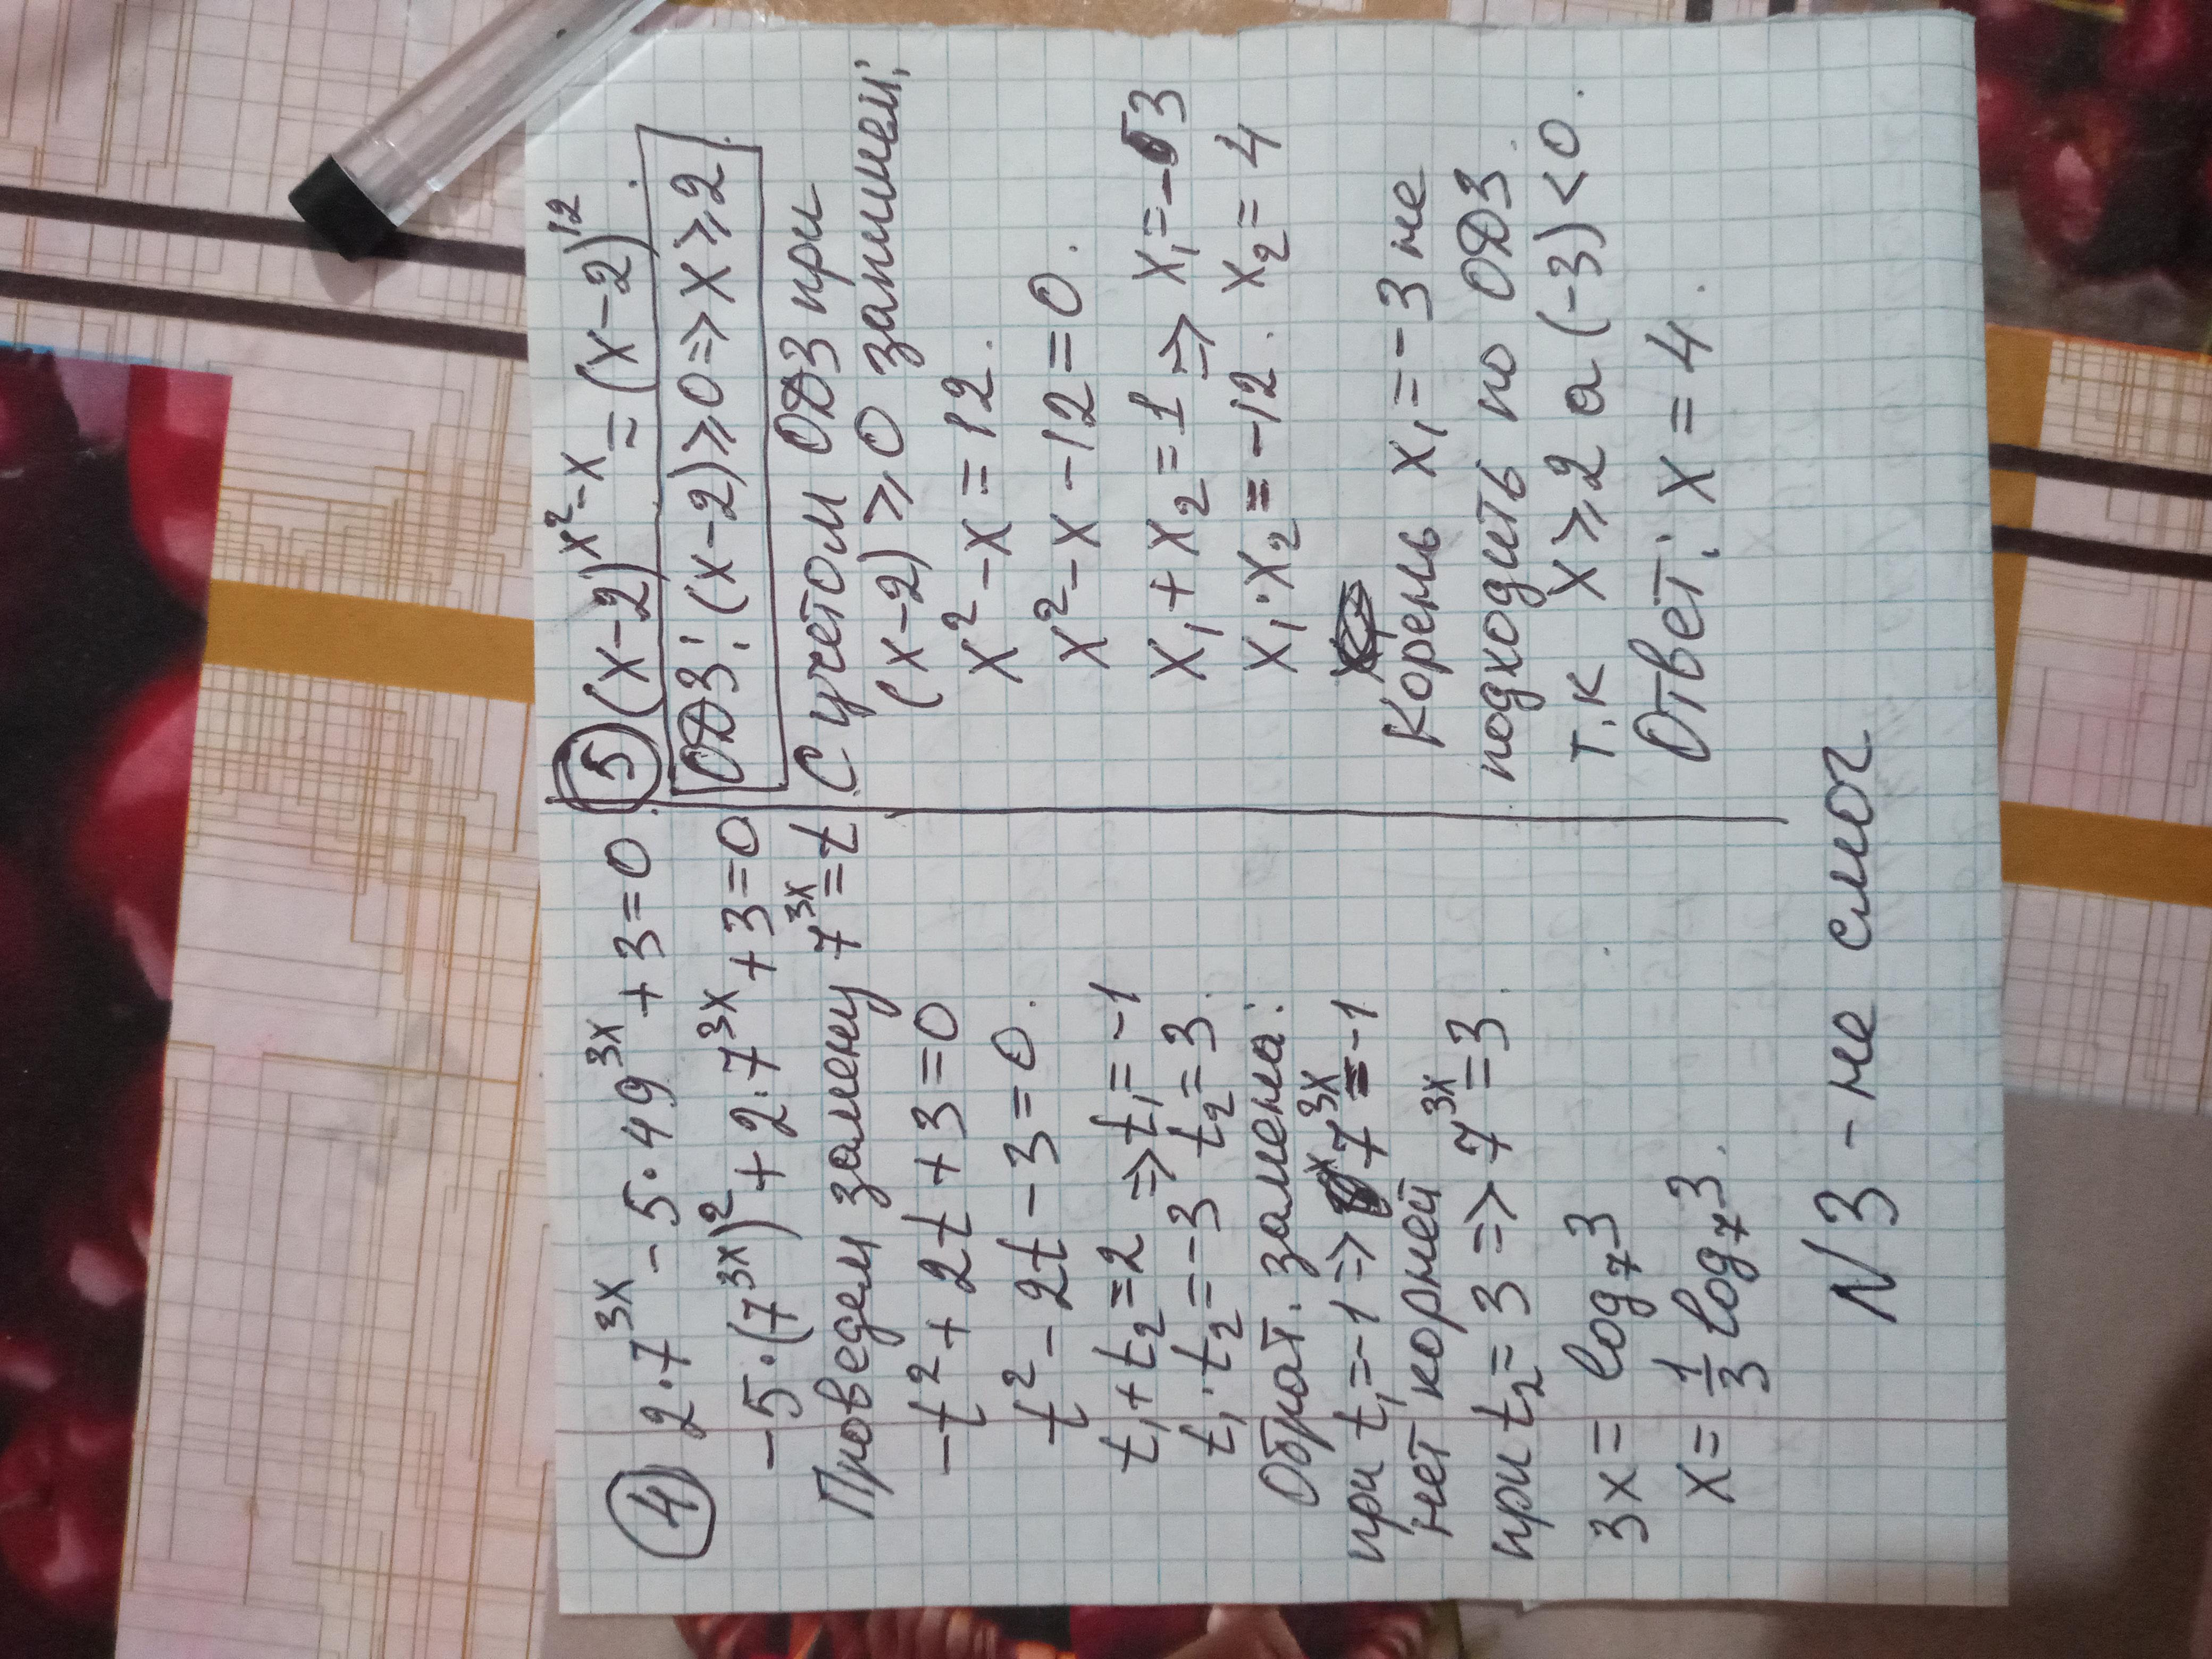 ④ 2·7^3x − 5·49^3x + 3 = 0
−5·(7^3x)^2 + 2·7^3x + 3 = 0
Проведем замену 7^3x = t
−t^2 + 2t + 3 = 0
t^2 − 2t − 3 = 0.
t₁ + t₂ = 2 => t₁ = −1
t₁ · t₂ = −3 t₂ = 3.
Обрат. замена:
при t₁ = −1 => 7^3x = −1
нет корней
при t₂ = 3 => 7^3x = 3.
3x = log₇3
x = 1/3 log₇3.
⑤ (x−2)^x^2−x = (x−2)^12
ОДЗ: (x−2) ⩾ 0 => x ⩾ 2.
С учетом ОДЗ при
(x−2) ⩾ 0 запишем:
x^2 − x = 12.
x^2 − x − 12 = 0.
x₁ + x₂ = 1 => x₁ = −3
x₁ · x₂ = −12. x₂ = 4
Корень x₁ = −3 не
подходить по ОДЗ.
т.к x ⩾ 2 а (−3) < 0.
Ответ: x = 4.
N3 − не смог